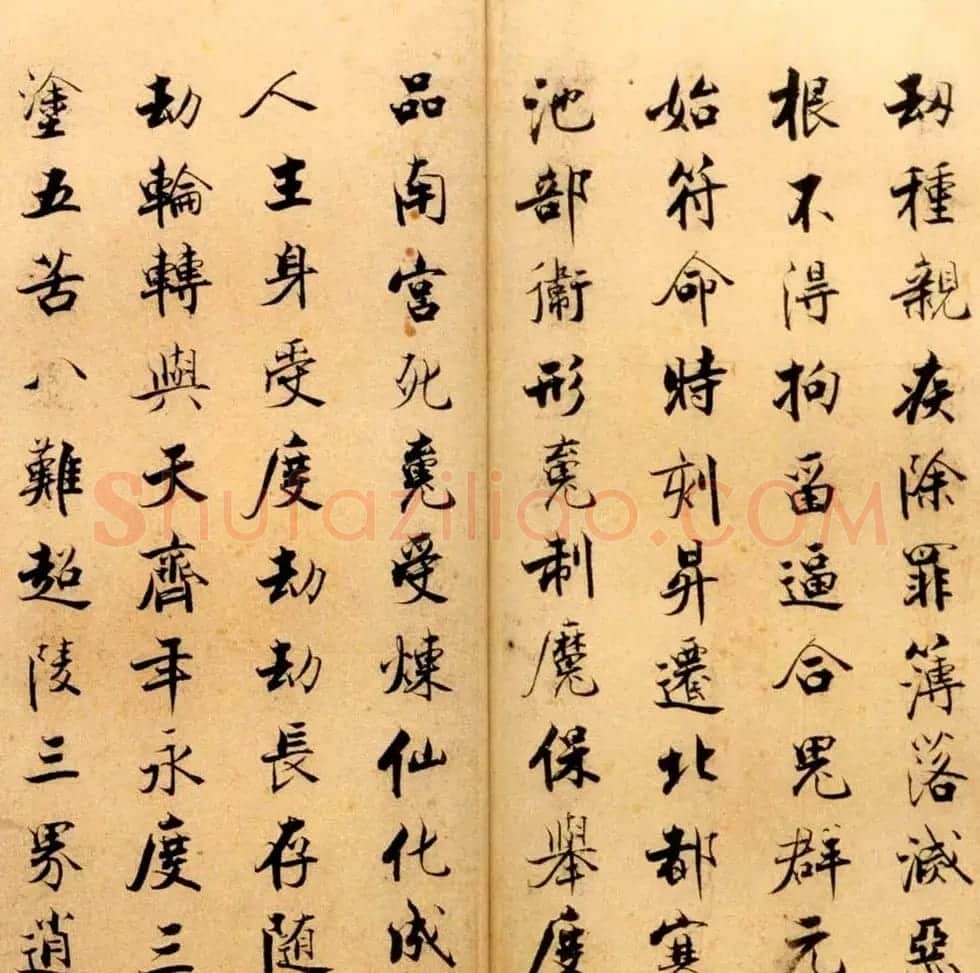 劫種親疾除罪簿落滅惡
根不得拘留逼合鬼群元
始符命時刻昇遷北都寒
池部衛形䰟制魔保舉度
品南宮死䰟受煉仙化成
人主身受度劫劫長存随
劫輪轉與天齊年永度三
塗五苦八難超陵三界逍
Shufaziliao.COM